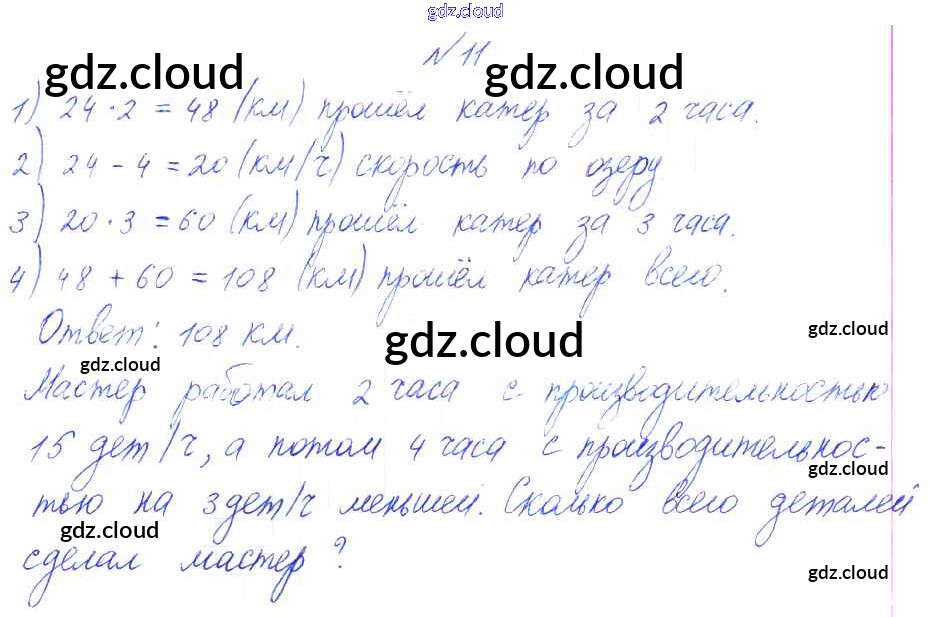 gdz.cloud
№ 11
gdz.cloud gdz.cloud
1) 24 · 2 = 48 (км) прошёл катер за 2 часа.
2) 24 - 4 = 20 (км/ч) скорость по озеру
3) 20 · 3 = 60 (км) прошёл катер за 3 часа.
4) 48 + 60 = 108 (км) прошёл катер всего.
Ответ: 108 км.
gdz.cloud gdz.cloud
gdz.cloud
Мастер работал 2 часа с производительностью
15 дет/ч, а потом 4 часа с производительнос-
gdz.cloud
тью на 3 дет/ч меньшей. Сколько всего деталей
gdz.cloud
сделал мастер?
gdz.cloud